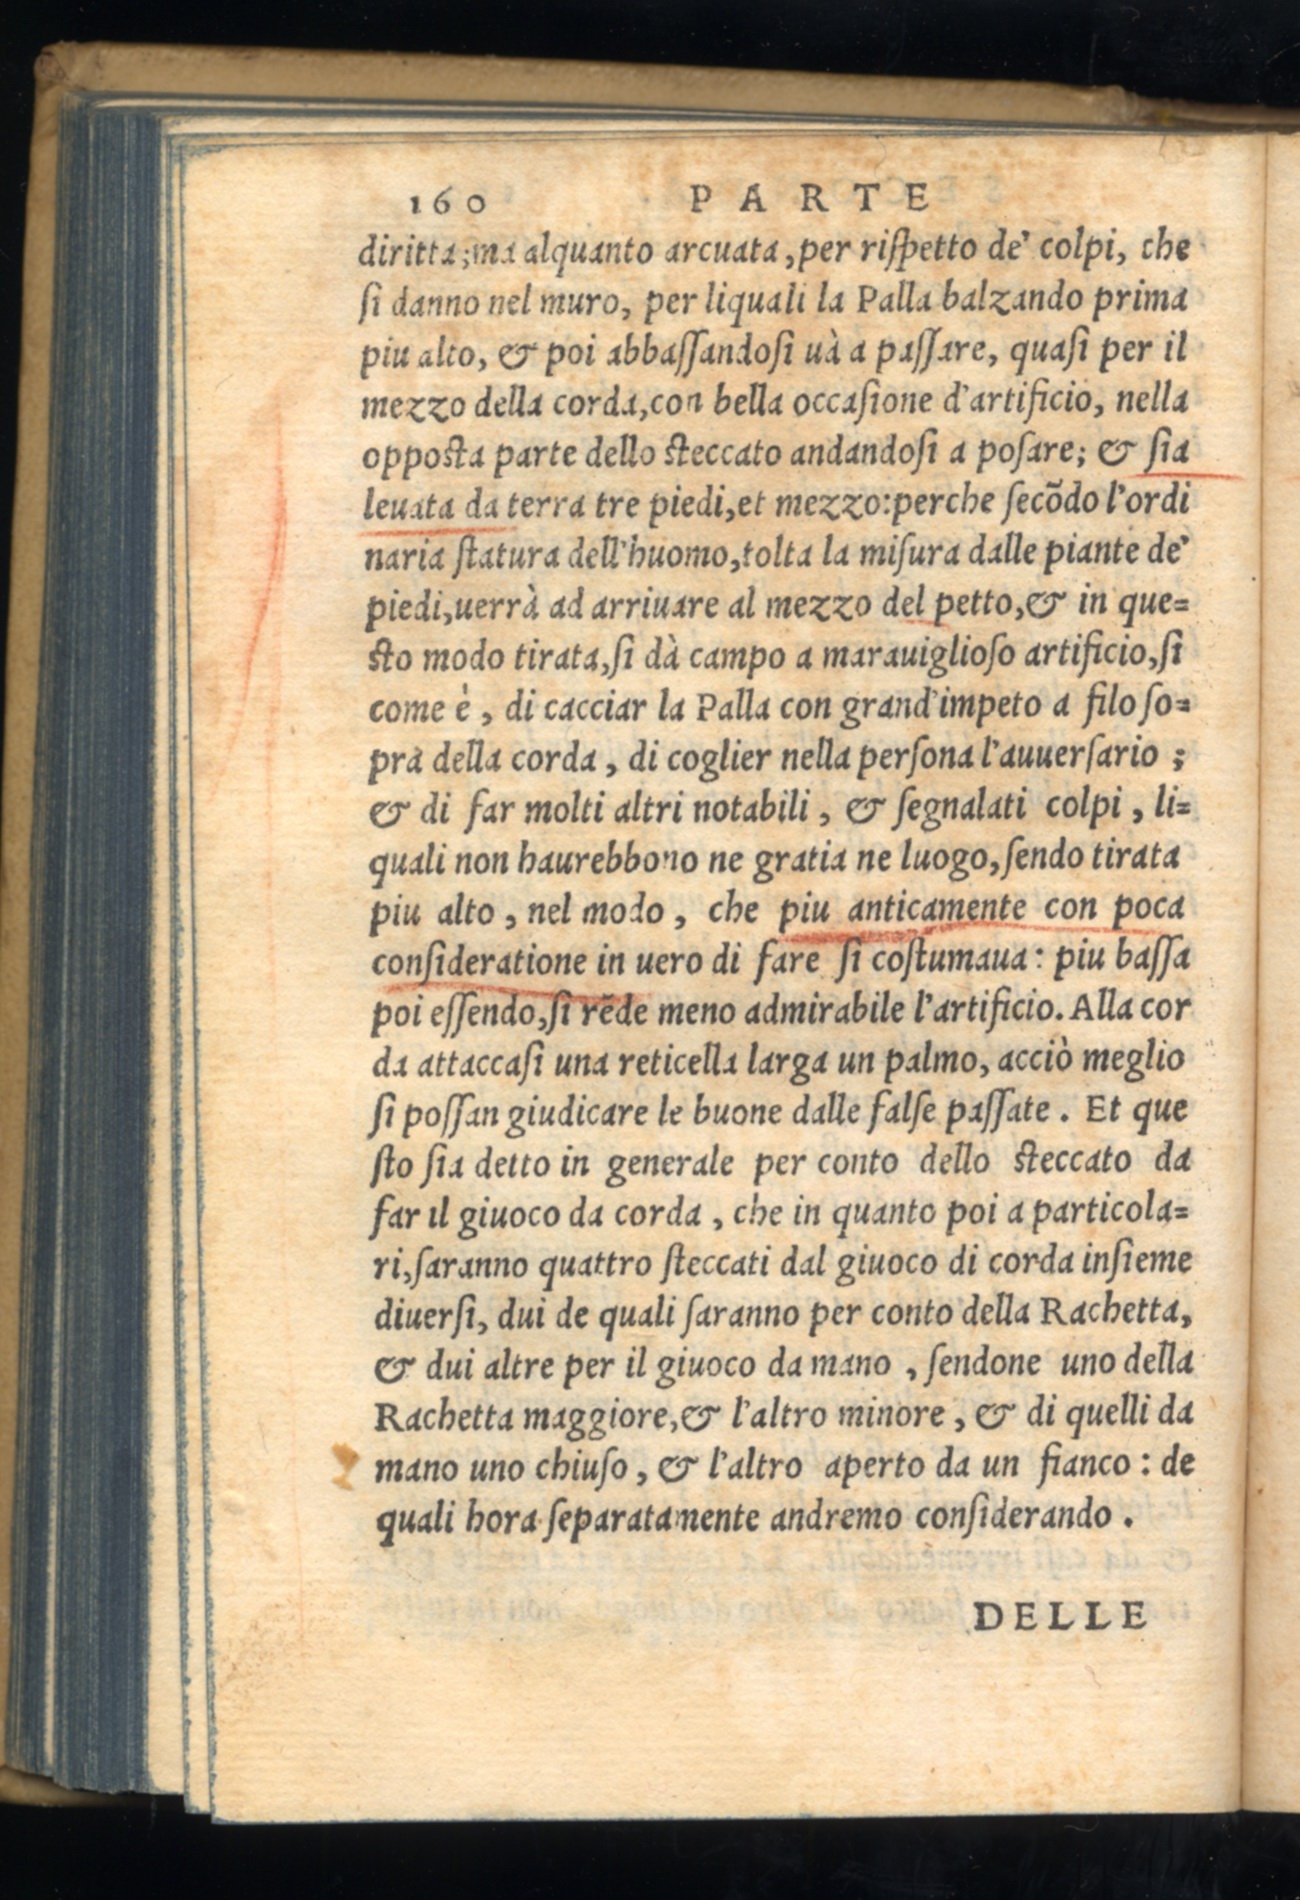 160 PARTE
diritta; ma alquanto arcuata, per riſpetto de' colpi, che
ſi danno nel muro, per liquali la Palla balzando prima
piu alto, & poi abbaſſandoſi uà a paſſare, quaſi per il
mezzo della corda, con bella occaſione d'artificio, nella
oppoſta parte dello ſteccato andandoſi a poſare; & ſia
leuata da terra tre piedi, et mezzo: perche ſecõdo l'ordi
naria ſtatura dell'huomo, tolta la miſura dalle piante de'
piedi, uerrà ad arriuare al mezzo del petto, & in que=
ſto modo tirata, ſi dà campo a marauiglioſo artificio, ſi
come è, di cacciar la Palla con grand'impeto a filo ſo=
pra della corda, di coglier nella perſona l'auuerſario;
& di far molti altri notabili, & ſegnalati colpi, li=
quali non haurebbono ne gratia ne luogo, ſendo tirata
piu alto, nel modo, che piu anticamente con poca
conſideratione in uero di fare ſi coſtumaua: piu baſſa
poi eſſendo, ſi rẽde meno admirabile l'artificio. Alla cor
da attaccaſi una reticella larga un palmo, acciò meglio
ſi poſſan giudicare le buone dalle falſe paſſate. Et que
ſto ſia detto in generale per conto dello ſteccato da
far il giuoco da corda, che in quanto poi a particola=
ri, ſaranno quattro ſteccati dal giuoco di corda inſieme
diuerſi, dui de quali ſaranno per conto della Rachetta,
& dui altre per il giuoco da mano, ſendone uno della
Rachetta maggiore, & l'altro minore, & di quelli da
mano uno chiuſo, & l'altro aperto da un fianco: de
quali hora ſeparatamente andremo conſiderando.
DELLE